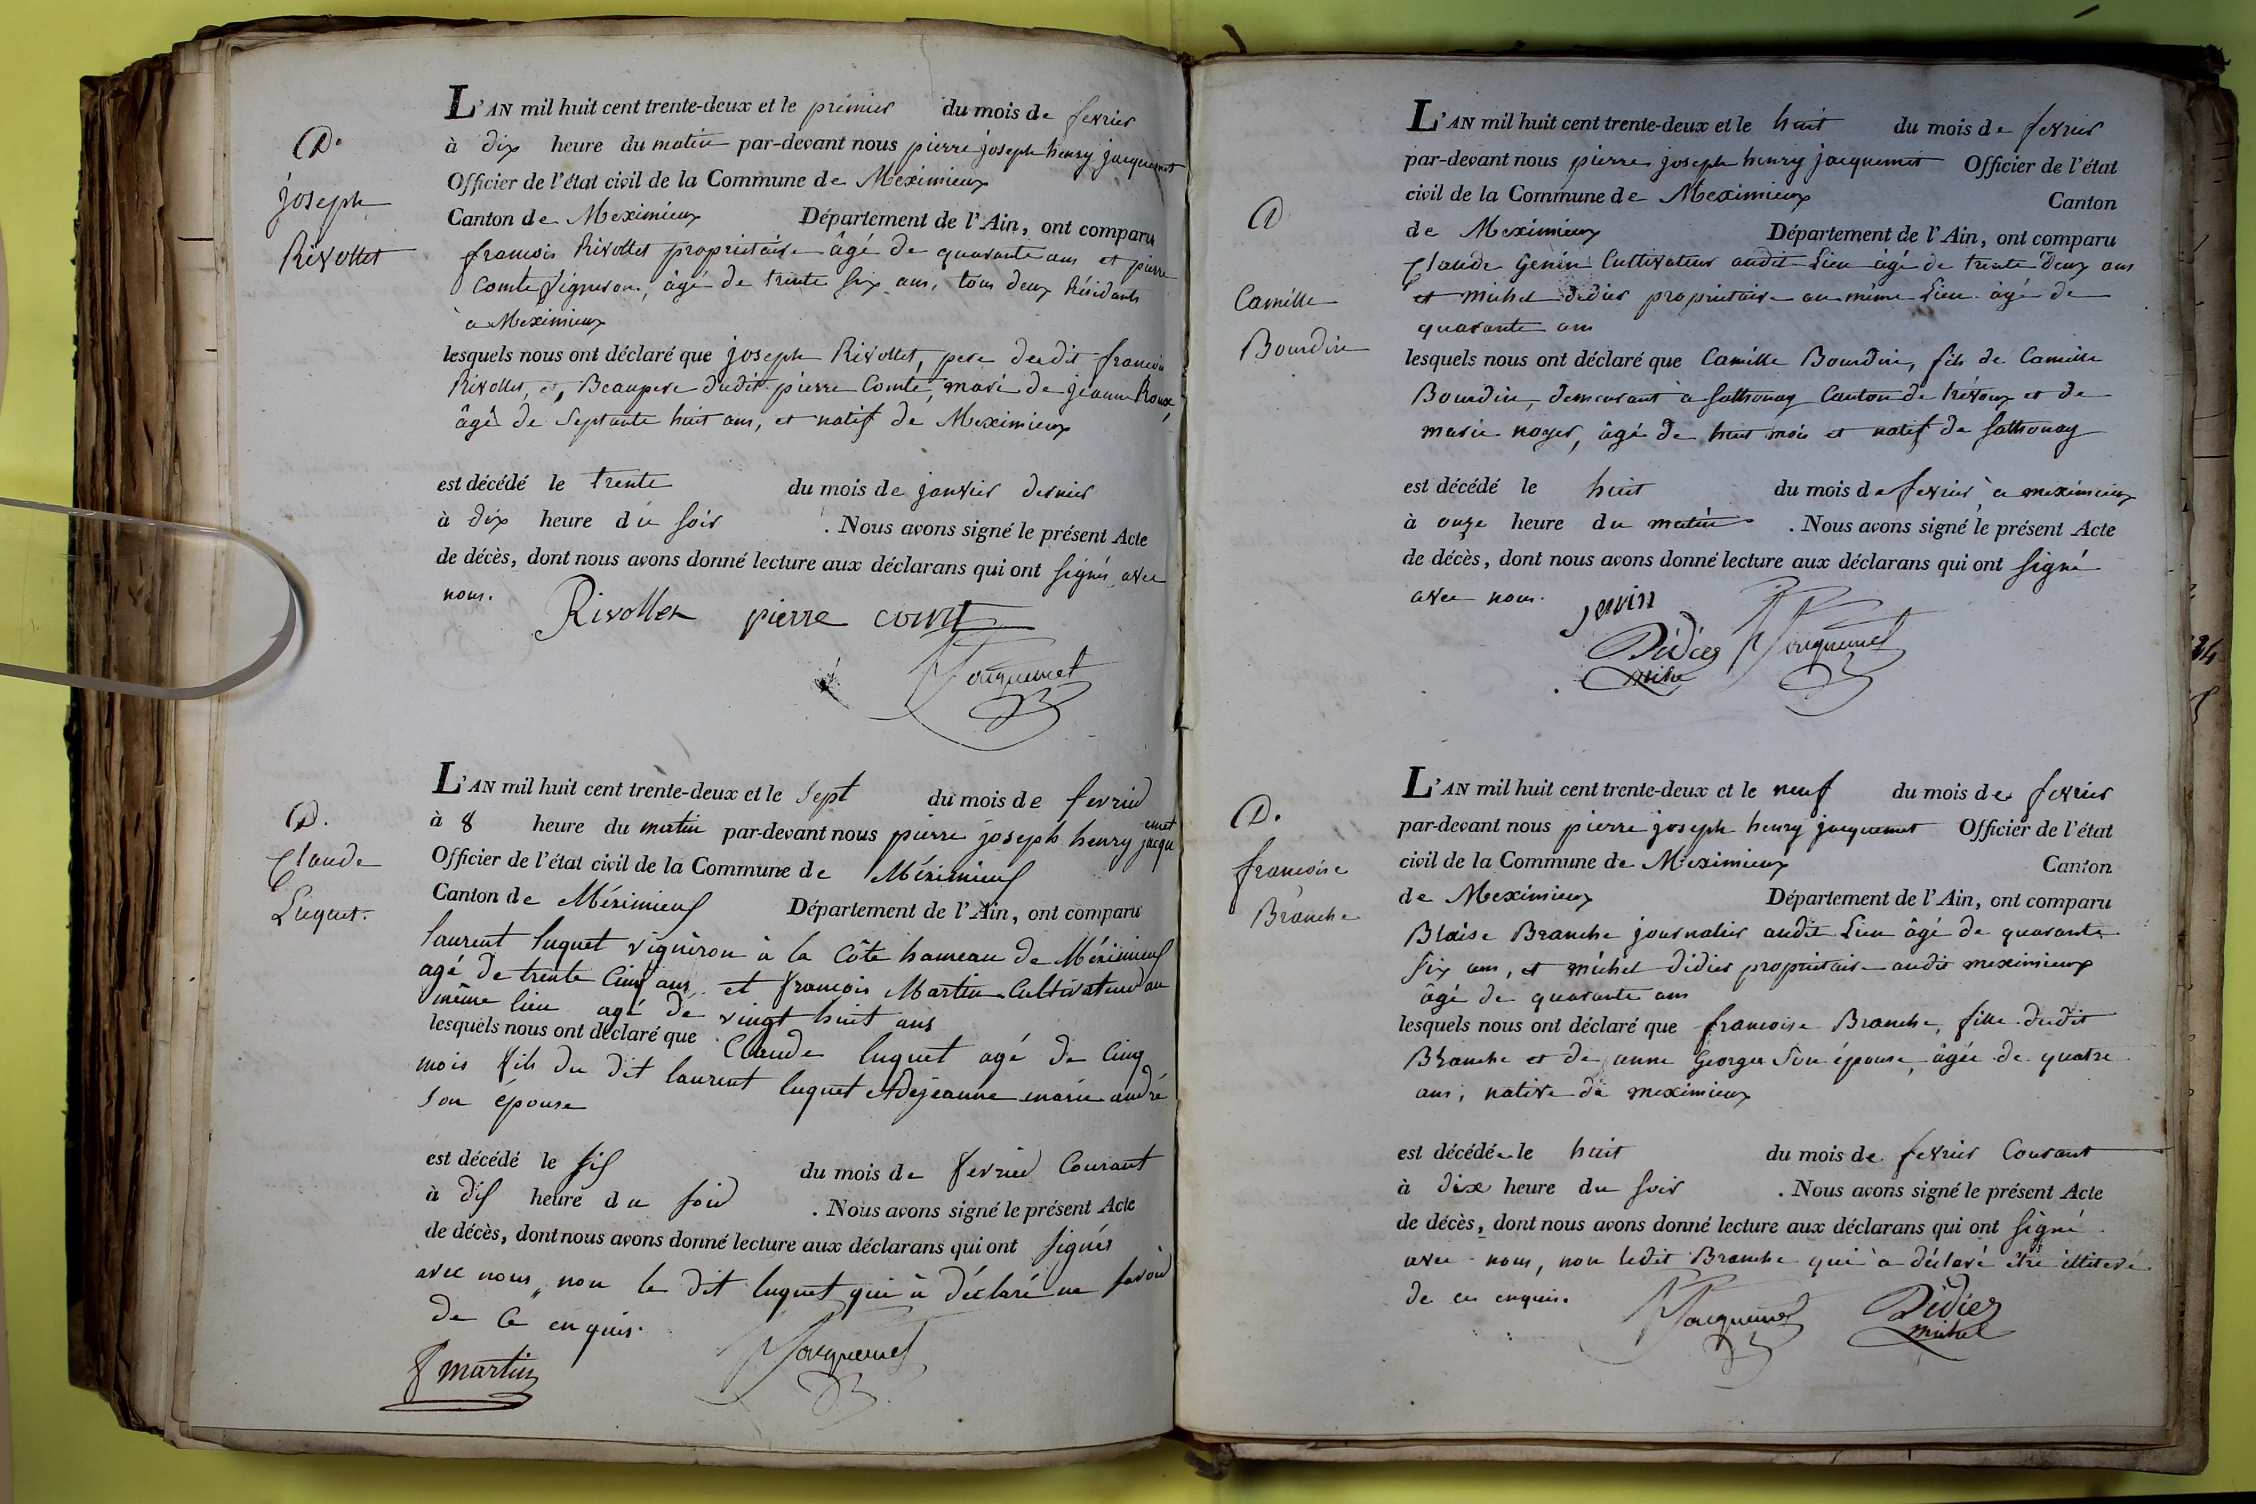 D.
joseph
Rivollet
L'AN mil huit cent trente-deux et le premier du mois de fevrier
à dix heure du matin par-devant nous pierre joseph henry jacquemet
Officier de l'état civil de la Commune de Meximieux
Canton de Meximieux Département de l'Ain, ont comparu
francois Rivollet proprietaire âgé de quarante ans et pierre
Comte Vigneron, âgé de trente six ans, tous deux Résidants
à Meximieux
lesquels nous ont déclaré que joseph Rivollet, pere dudit francois
Rivollet, et Beaupere dudit pierre Comte, mari de jeanne Roux,
âgé de Septante huit ans, et natif de Meximieux
est décédé le trente du mois de janvier dernier
à dix heure du soir . Nous avons signé le présent Acte
de décès, dont nous avons donné lecture aux déclarans qui ont signés avec
nous.
Rivollet pierre comt
Jacquemet
D.
Claude
Luquet.
L'AN mil huit cent trente-deux et le sept du mois de fevrier
à 8 heure du matin par-devant nous pierre joseph henry jacquemet
Officier de l'état civil de la Commune de Méximieux
Canton de Méximieux Département de l'Ain, ont comparu
laurent luquet vigneron à la Côte hameau de Méximieux
agé de trente cinq ans, et françois Martin Cultivateur au
même lieu agé de vingt huit ans
lesquels nous ont déclaré que Claude luquet agé de Cinq
mois fils du dit laurent luquet et de jeanne marie andré
son épouse
est décédé le six du mois de fevrier Courant
à dix heure du soir . Nous avons signé le présent Acte
de décès, dont nous avons donné lecture aux déclarans qui ont signés
avec nous, non le dit luquet qui à déclaré ne savoir
de ce enquis.
f martin Jacquemet
D
Camille
Bourdin
L'AN mil huit cent trente-deux et le huit du mois de fevrier
par-devant nous pierre joseph henry jacquemet Officier de l'état
civil de la Commune de Meximieux Canton
de Meximieux Département de l'Ain, ont comparu
Claude Genin Cultivateur audit Lieu agé de trente deux ans
et michel didier proprietaire au même Lieu âgé de
quarante ans
lesquels nous ont déclaré que Camille Bourdin, fils de Camille
Bourdin, demeurant à Sathonay Canton de trévoux et de
marie noyer, âgé de huit mois et natif de Sathonay
est décédé le huit du mois de fevrier à meximieux
à onze heure du matin . Nous avons signé le présent Acte
de décès, dont nous avons donné lecture aux déclarans qui ont signé
avec nous.
jenin
Didier Jacquemet
D.
francoise
Branche
L'AN mil huit cent trente-deux et le neuf du mois de fevrier
par-devant nous pierre joseph henry jacquemet Officier de l'état
civil de la Commune de Meximieux Canton
de Meximieux Département de l'Ain, ont comparu
Blaise Branche journalier audit Lieu âgé de quarante
six ans, et michel didier proprietaire audit meximieux
âgé de quarante ans
lesquels nous ont déclaré que francoise Branche, fille dudit
Branche et de anne Georges son épouse, âgée de quatre
ans, native de meximieux
est décédée le huit du mois de fevrier Courant
à dix heure du soir . Nous avons signé le présent Acte
de décès, dont nous avons donné lecture aux déclarans qui ont signé
avec nous, non ledit Branche qui à déclaré être illiteré
de ce enquis.
Jacquemet Didier
michel